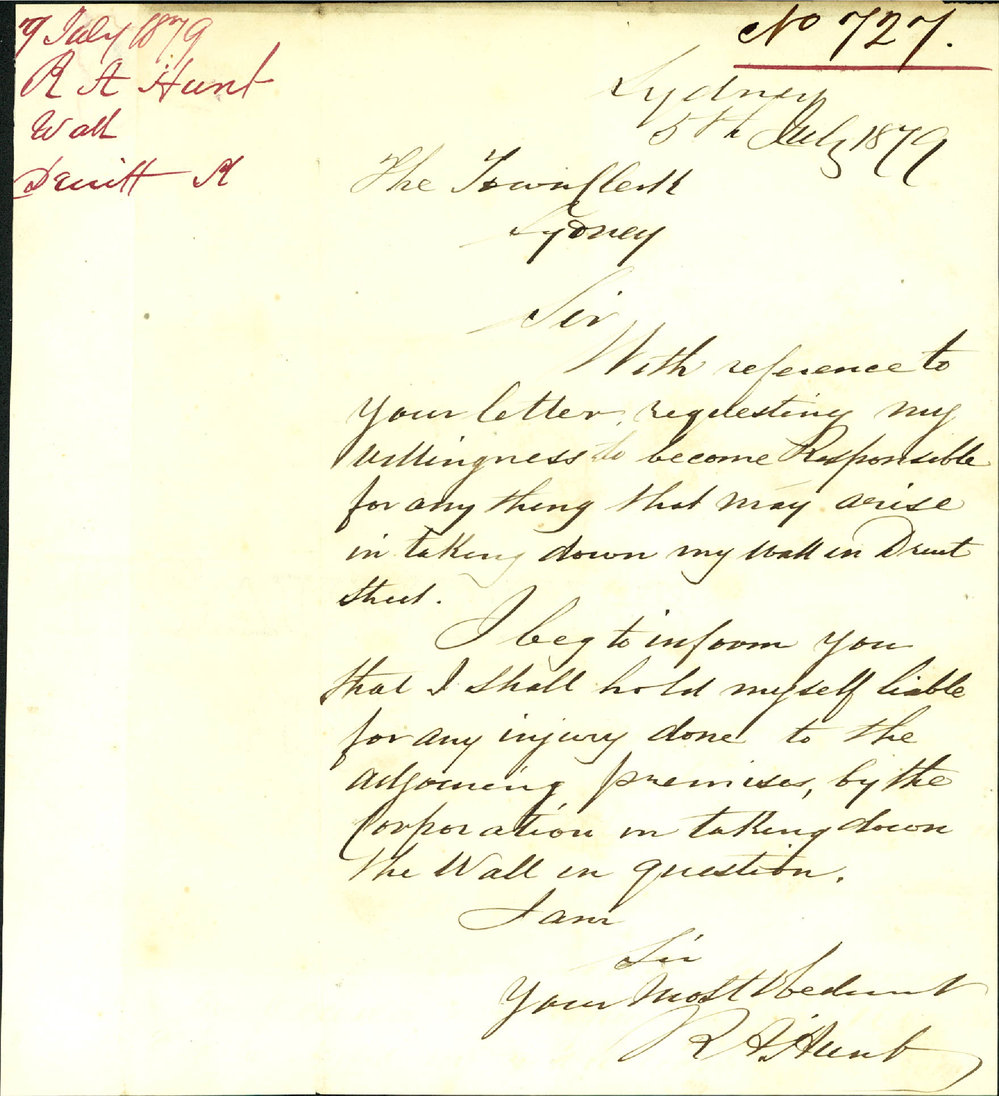 7 July 1879
R A Hunt
Wall
Druitt St
No 727.
Sydney
5th July 1879
The Town Clerk
Sydney
Sir
With reference to
your letter, requesting my
willingness to become Responsible
for any thing that may arise
in taking down my Wall in Druit
Street.
I beg to inform you
that I shall hold myself liable
for any injury done to the
adjoining premises, by the
Corporation in taking down
the Wall in question.
I am
Sir
Your Most Obedient
R A Hunt